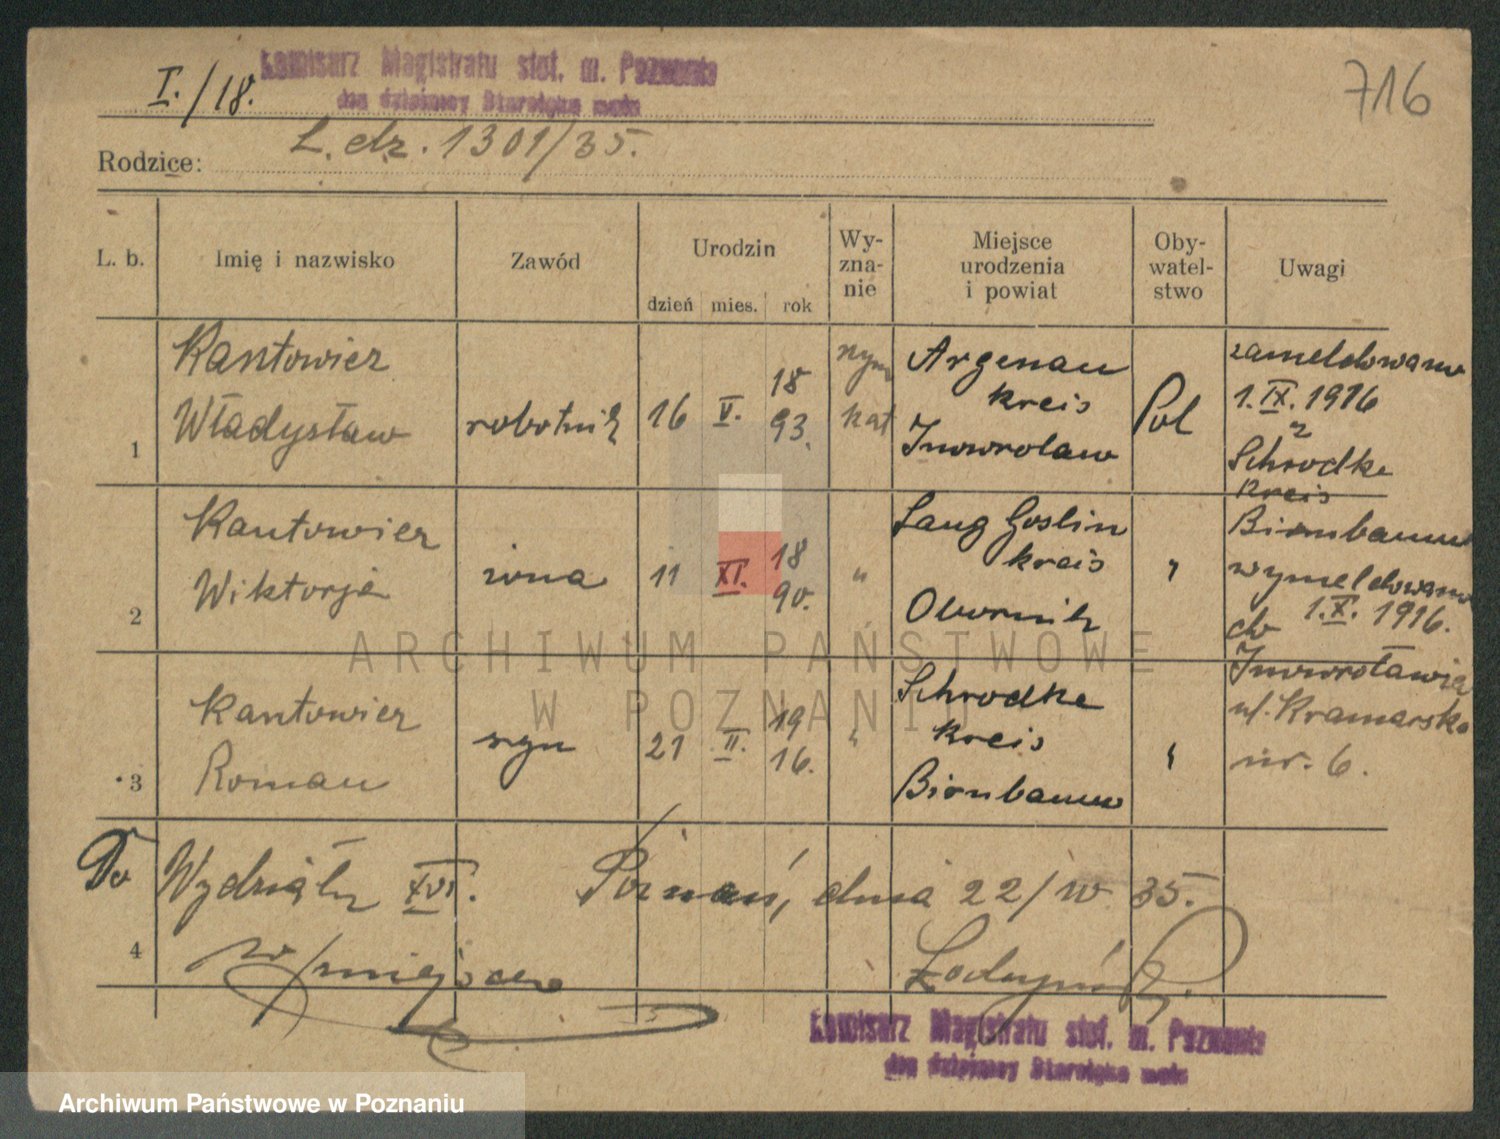 I./18.
Komisarz Magistratu stoł. m. Poznania
dla dzielnicy Starołęka mała
716
L. dz. 1301/35.
Rodzice:
L. b. Imię i nazwisko Zawód Urodzin Wy-zna-nie Miejsce urodzenia i powiat Oby-watel-stwo Uwagi
dzień mies. rok
1 Kantowicz Władysław robotnik 16 V. 18 93. rzym kat Argenau kreis Inowrolaw Pol
zameldowano
1. IX. 1916
z
Schrodke
kreis
2 Kantowicz Wiktorja żona 11 XI. 18 90. " Lang Goslin kreis Obornik "
Birnbaum
wymeldowano
1. X. 1916.
do
3 Kantowicz Roman syn 21 II. 19 16. " Schrodke kreis Birnbaum "
Inowrocławia
ul. Kramarska
nr. 6.
Do Wydziału XVI. Poznań, dnia 22/IV 35.
4 w/miejscu
Komisarz Magistratu stoł. m. Poznania
dla dzielnicy Starołęka mała
ARCHIWUM PAŃSTWOWE
W POZNANIU
Archiwum Państwowe w Poznaniu